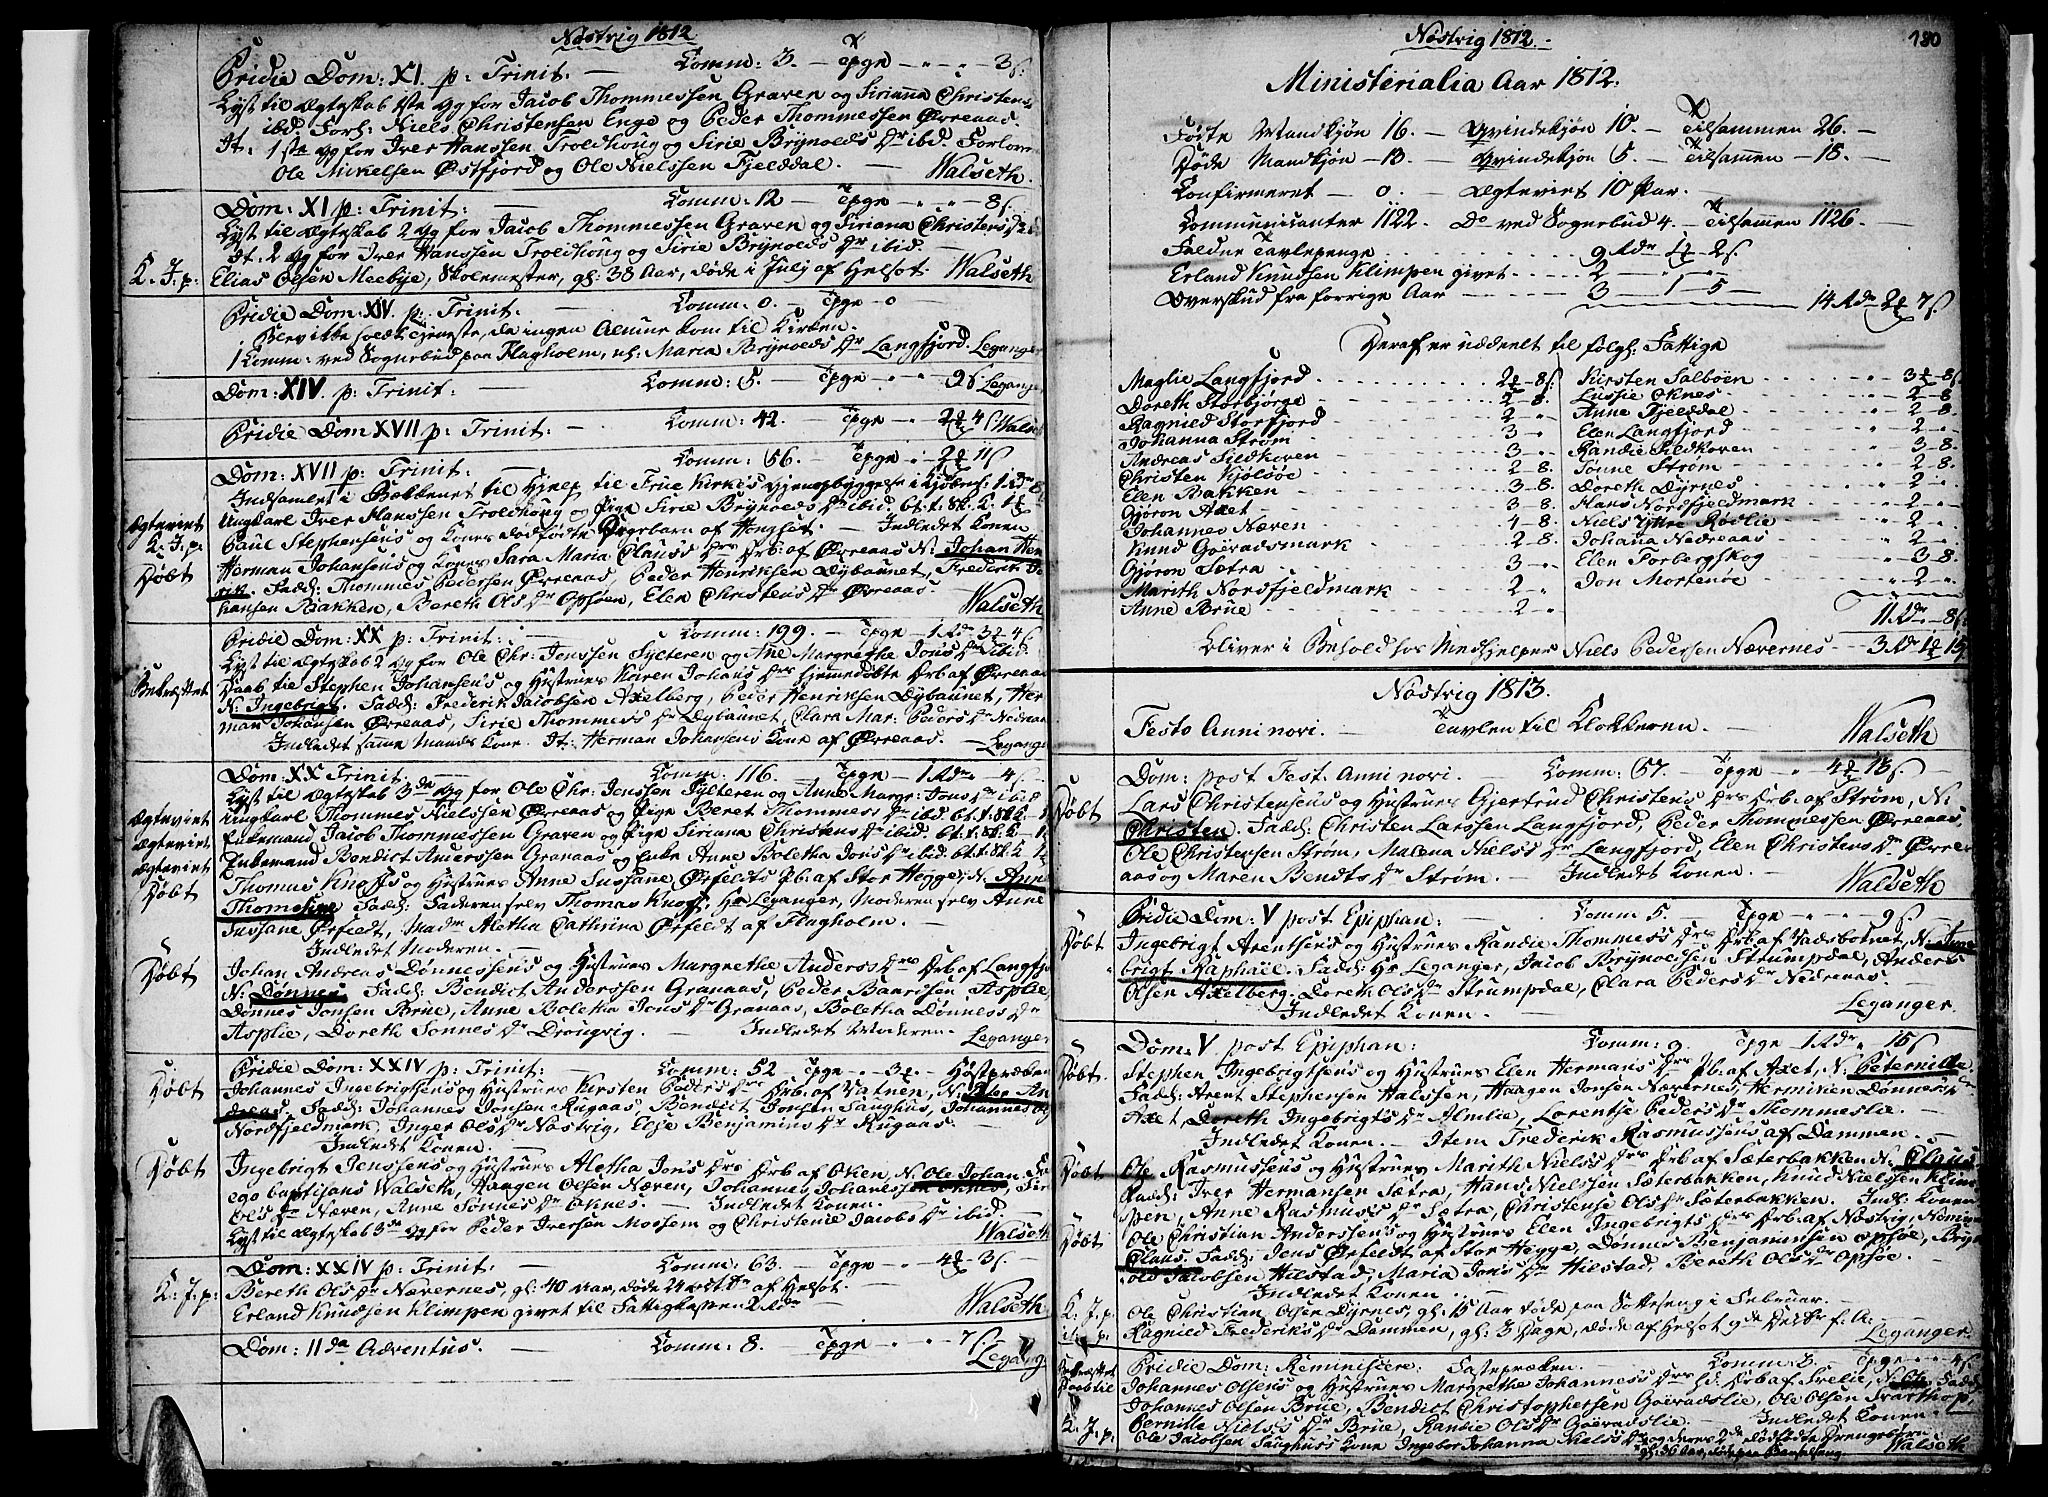 Nøstvig 1812
Pridie Dom: XI. p: Trinit. — Comm: 3. — Tpge „ „ 3ſ.
Lyst til Ægteskab 1ste Gg for Jacob Thommessen Graven og Siriana Christens
ibid. Forl: Niels Christensen Enge og Peder Thommessen Ørreaas.
It: 1ste Gg for Iver Hanssen Troldhoug og Sirie Brÿnoldsdr ibid. Forlovere
Ole Mickelsen Østfjord og Ole Nielssen Fjelddal. — Walseth.
Dom: XI p: Trinit: — Comm: 12 — Tpge „ „ 8ſ.
Lyst til Ægteskab 2 Gg for Jacob Thommessen Graven og Siriana Christensdr ibid
It: 2 Gg for Iver Hanssen Troldhoug og Sirie Brÿnoldsdr ibid.
K. J. p: Elias Olsen Meebye, Skolemester, gl: 38 Aar, døde i Julj af Helsot. Walseth
Pridie Dom: XIV. p: Trinit. Comm: 0. — Tpge 0
Blev ikke holdt Tjeneste, da ingen Almue kom til Kirken.
1 Comm: ved Sognebud paa Flagholm, nl: Maria Brÿnoldsdr Langfjord. Leganger
Dom: XIV. p: Trinit. — Comm: 5. — Tpge „ „ 9ſ Leganger
Pridie Dom XVII p: Trinit: — Comm: 42. Tpge — 4ſ Walseth
Dom: XVII p: Trinit: — Comm: 56. — Tpge „ 11ſ
Indsamlet i Bekkenet til Hjelp til Frue Kirkes Gjenopbyggelse i Kjøbenh: 1 Rdr
Ægteviet Ungkarl Iver Hanssen Troldhoug og Pige Sirie Brÿnoldsdr ibid.
K. J. p: Paul Stephensens og Kones dødfødte Pigebarn af Hougset. — Indledet Konen
Døbt Herman Johansens og Kones Sara Maria Clausdrs Drb: af Ørreaas N: Johan Hen
rik. Fadd: Thommes Pedersen Ørreaas, Peder Henriksen Dybaunet, Frederik Jo
hansen Bakken, Bereth Olsdr Opsøen, Elen Christensdr Ørreaas. — Walseth
Pridie Dom: XX p: Trinit: — Comm: 199. — Tpge — 1 Rdr
Lyst til Ægteskab 2 Gg for Ole Chr: Jonssen Sylteren og Ane Margrethe Jonsdr ibid
Bekræftet Daab til Stephen Johansens og Hustrues Karen Johansdrs hjemedøbte Drb: af Ørreaas
N: Ingebrigt. Fadd: Frederik Jacobsen Axelberg, Peder Henriksen Dybaunet, Her
man Johansen Ørreaas, Sirie Thommesdr Dybaunet, Clara Mar: Pedersdr Nedreaas
Indledet samme Mands Kone. It: Herman Johansens Kone af Ørreaas. — Leganger
Dom: XX Trinit. — Comm: 116. — Tpge — 1 Rdr — 4ſ.
Lyst til Ægteskab 3de Gg for Ole Chr: Jonssen Sylteren og Anne Margr: Jonsdr ibid
Ægteviet Ungkarl Thommes Nielssen Ørreaas og Pige Beret Thommesdr ibid.
Ægteviet Enkemand Jacob Thommessen Graven og Pige Siriana Christensdr ibid.
Ægteviet Enkemand Bendict Anderssen Granaas og Enke Anne Boletha Jonsdr ibid.
Døbt Thomas Knoffs og Hustrues Anne Sussane Ørfeldts Pb: af Stor Hegge, N: Anne
Thomesine Fadd: Faderen selv Thomas Knoff, Hr Leganger, Moderen selv Anne
Sussane Ørfeldt, Madm Aletha Cathrina Ørfeldt af Flagholm. —
Indledet Moderen. —
Døbt Johan Andreas Dønnessens og Hustrues Margrethe Andersdrs Drb: af Langfjo
N: Dønnes. Fadd: Bendict Anderssen Granaas, Peder Baardsen Asplie,
Dønnes Jonsen Brue, Anne Boletha Jonsdr Granaas, Boletha Dønnesdr
Asplie, Doreth Sonnesdr Drougvig. — Indledet Moderen. — Leganger
Pridie Dom: XXIV p: Trinit: — Comm: 52 Tpge Høstpræken
Døbt Johannes Ingebrigtsens og Hustrues Kirsten Pedersdrs Drb: af Vatnen, N: Peter An
dreas, Fadd: Johannes Jonsen Rugaas, Bendict Jonsen Saughus, Johannes
Nordfjeldmark, Inger Olsdr Nøstvig, Else Benjaminsdr Rugaas.
Indledet Konen. —
Døbt Ingebrigt Jenssens og Hustrues Aletha Jonsdrs Drb: af Oknen, N: Ole Johan. Fa
ego baptisans Walseth, Haagen Olsen Næren, Johannes Johanessen Oknes, Sir
Olsdr Næren, Anne Sonnesdr Oknes. — Indledet Konen.
Lyst til Ægteskab 3de Gg for Peder Iversen Mossem og Christense Jacobsdr ibid. Walseth
Dom: XXIV p: Trinit: — Comm: 63. — Tpge — 3ſ.
K. J. p: Bereth Olsdr Nævernes, gl: 40 Aar, døde 24 octbr af Helsot.
Erland Knudsen Klimpen givet til Fattigkassen 2 Rdr Walseth
Dom: IIda Adventus. — Comm: 8. Tpge „ „ 7ſ Leganger
Nøstvig 1812.
180
Ministerialia Aar 1812.
Fødte Mandkjøn 16. — Qvindekjøn 10. — Tilsammen 26. —
Døde Mandkjøn — 13. — Qvindekjøn 5. — Tilsammen — 18. —
Confirmeret — 0. — Ægteviet 10 Par.
Communicanter 1122. Do ved Sognebud 4. Tilsammen 1126.
Faldne Tavlepenge 9 Rdr 2ſ.
Erland Knudsen Klimpen givet 2 „ „
Overskud fra forrige Aar 3 — 1 5 — 14 Rdr 2 7ſ.
Deraf er uddeelt til følg: Fattige
Maglie Langfjord 2 — 8ſ. Kirsten Salbøen 3 — 8ſ
Doreth Storbjørge 2 — 8. Lussie Oknes 2 — 8
Ragnild Storfjord 2 „ Anne Fjelddal 2 — 8.
Johanna Strøm 3 „ Elen Langfjord 2 — „
Andreas Sildkoven 3 „ Randie Sildkoven 3 — 8.
Christen Kjølsøe 2 8. Sonne Strøm 2 — 8.
Elen Bakken 3 — 8. Doreth Dÿrnes 2 „
Gjøron Axet 3 8. Hans Nordfjeldmark 2 „
Johannes Næren 4 — 8. Niels Yttre Rødlie 2 „
Knud Goëvadsmark 2 8. Johana Nedreaas 2 „
Gjøron Sætra 3 „ Elen Forbergskog 3 — 8
Marith Nordfjeldmark 2 „ Jon Mortenøe 2 „
Anne Brue 2 „
11 Rdr — 8ſ.
Bliver i Behold hos Medhjelper Niels Pedersen Nævernes — 3 Rdr 1 15ſ.
Nøstvig 1813.
Festo Anni novi. — Tavlen til Klokkeren. — Walseth
Dom: post Fest. Anni novi. — Comm: 57. — Tpge „ 4 13ſ. —
Døbt Lars Christensens og Hustrues Gjertrud Christensdrs Drb: af Strøm, N:
Christen. Fadd: Christen Larssen Langfjord, Peder Thommessen Ørreaas,
Ole Christensen Strøm, Malena Nielsdr Langfjord, Elen Christensdr Ørre
aas og Maren Bendtsdr Strøm. — Indledet Konen. — Walseth
Pridie Dom: V post Epiphan: — Comm 5. — Tpge — „ — 9ſ —
Døbt Ingebrigt Arentsens og Hustrues Randie Thommesdrs Drb: af Vadsbotnet, N: Inge
brigt Raphaël. Fadd: Hr Leganger, Jacob Brÿnoldsen Strumpdal, Anders
Olsen Axelberg. Doreth Olsdr Strumpdal, Clara Pedersdr Nedreaas.
Indledet Konen. — Leganger.
Dom: V post Epiphan: Comm: 9. Tpge 1 Rdr „ 15ſ
Døbt Stephen Ingebrigtsens og Hustrues Elen Hermansdrs Pb: af Axet, N: Peternille
Fadd: Arent Stephensen Halssen, Haagen Jonsen Nævernes, Herminken Dønnesdr
Axet, Doreth Ingebrigtsdr Almlie, Lorentse Pedersdr Thommeslie. —
Indledet Konen. — Item Frederik Rasmussens af Dammen. —
Døbt Ole Rasmussens og Hustrues Marith Nielsdrs Drb: af Sæterbakken N: Claus.
Fadd: Iver Hermansen Sætra, Hans Nielssen Sæterbakken, Knud Nielssen Klim
pen, Anne Rasmusdr Sætra, Christense Olsdr Sæterbakken. Indl: Konen
Døbt Ole Christian Anderssens og Hustrues Elen Ingebrigtsdrs Drb: af Nøstvig, Nomine
Claus. Fadd: Jens Ørfeldt af Stor Hegge, Dønnes Benjaminsen Opsøe, Brÿn
old Jacobsen Hilstad, Maria Jonsdr Hilstad, Bereth Olsdr Opsøe.
Indledet Konen —
K. J. p. Ole Christian Olsen Dÿrnes, gl: 15 Aar døde paa Sotteseng i Februar. —
it: p: Ragnild Frederiksdr Dammen, gl: 3 Dage, døde af Helsot 9de Decbr f: A: Leganger
Pridie Dom: Reminiscere: Fastepræken. Comm: 3. — Tpge „ „ 4ſ
Bekræftet Daab til Johannes Olsens og Hustrues Margrethe Johannesdrs hd. Drb: af Trelie, N: Ole Fadd:
Johannes Olsen Brue, Bendict Christophersen Goëvadslie, Ole Olsen
Pernille Nielsdr Brue, Randie Olsdr Goëvadslie. — Indledet Konen. —
K. J. p: Ole Jacobsen Saughus's Kone Ingebor Johanna Nielsdr og deres 2de dødfødte Drengebørn
gl: 36 Aar, døde paa Barselseng Walseth